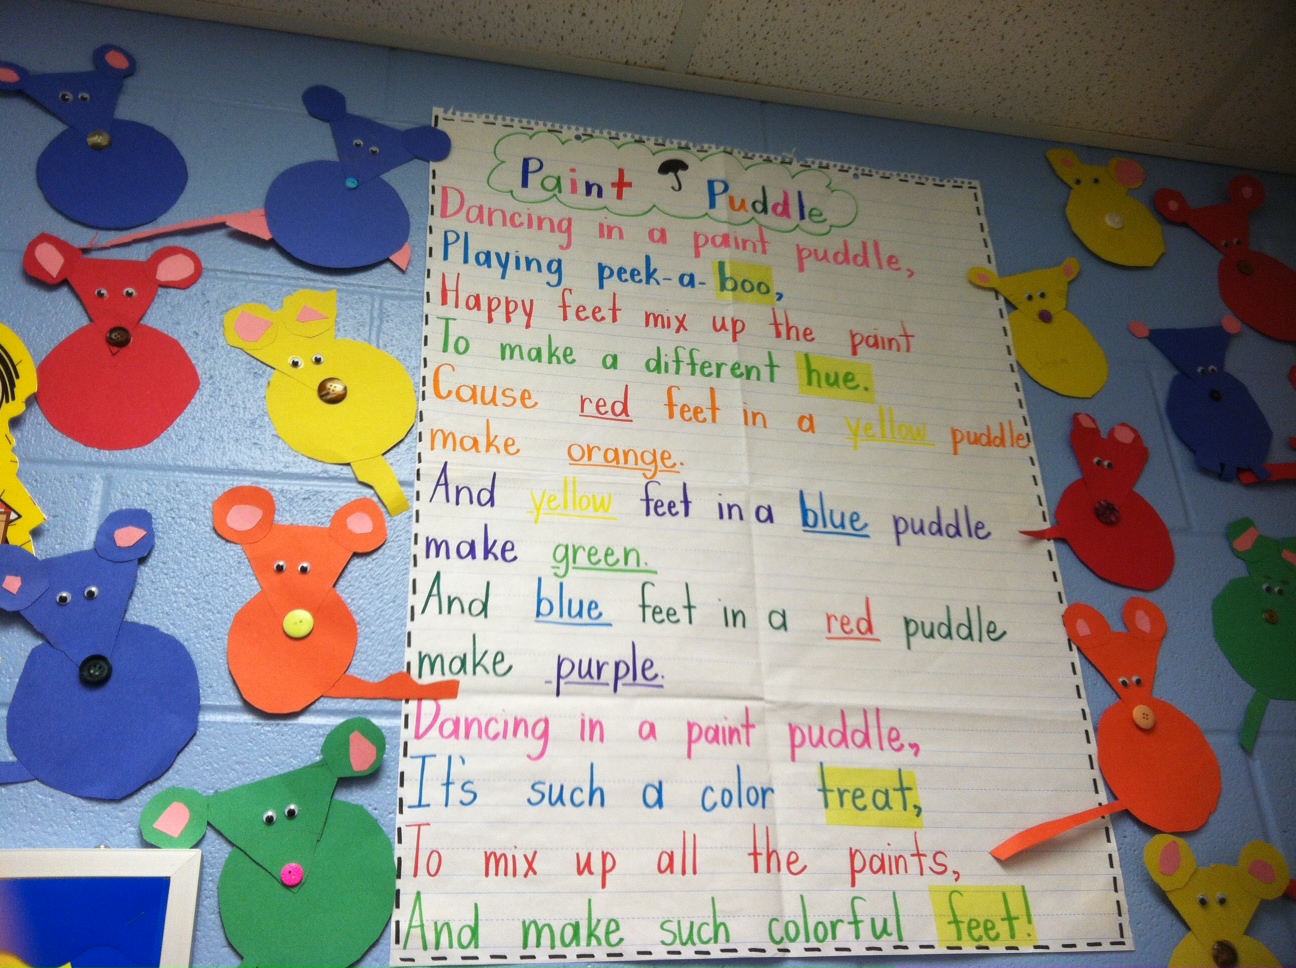 Paint Puddle
Dancing in a paint puddle,
Playing peek-a-boo,
Happy feet mix up the paint
To make a different hue.
Cause red feet in a yellow puddle
make orange.
And yellow feet in a blue puddle
make green.
And blue feet in a red puddle
make purple.
Dancing in a paint puddle,
It's such a color treat,
To mix up all the paints,
And make such colorful feet!